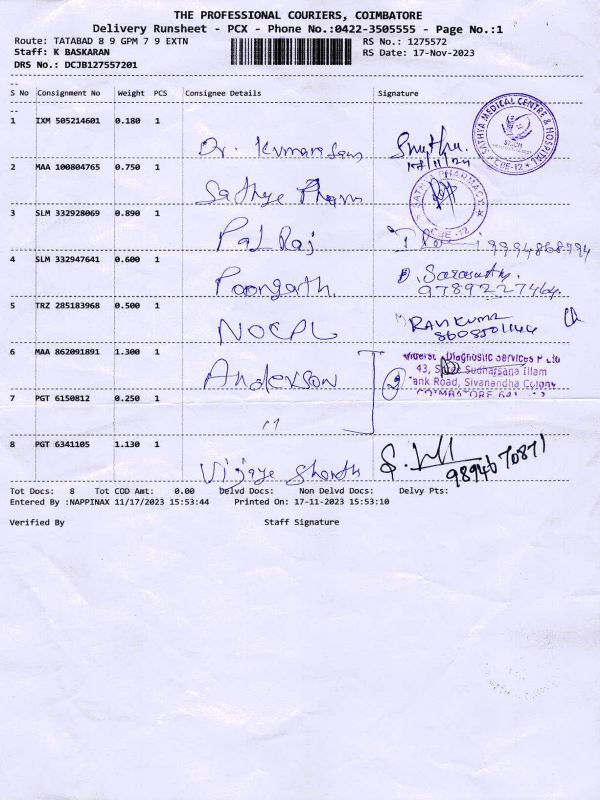 THE PROFESSIONAL COURIERS, COIMBATORE
Delivery Runsheet - PCX - Phone No.:0422-3505555 - Page No.:1
Route: TATABAD 8 9 GPM 7 9 EXTN RS No.: 1275572
Staff: K BASKARAN RS Date: 17-Nov-2023
DRS No.: DCJB127557201
S No Consignment No Weight PCS Consignee Details Signature
1 IXM 505214601 0.180 1
Dr. Kumaresan
SATHYA MEDICAL CENTRE & HOSPITAL
CBE-12
2 MAA 100804765 0.750 1
Sathye Pharm
SATHYA PHARMACY
CBE-12
3 SLM 332928069 0.890 1
Pal Raj 9994868794
4 SLM 332947641 0.600 1
Poongoth. D. Saraswathy.
9789227464
5 TRZ 285183968 0.500 1
NOCPL RAVIKUMAR
6 MAA 862091891 1.300 1
Anderson 2
Diagnostic Services P Ltd
43, Sudharsana Illam
Tank Road, Sivanandha Colony
COIMBATORE
7 PGT 6150812 0.250 1
"
8 PGT 6341105 1.130 1
Vijaye
9894670871
Tot Docs: 8 Tot COD Amt: 0.00 Delvd Docs: Non Delvd Docs: Delvy Pts:
Entered By :NAPPINAX 11/17/2023 15:53:44 Printed On: 17-11-2023 15:53:10
Verified By Staff Signature